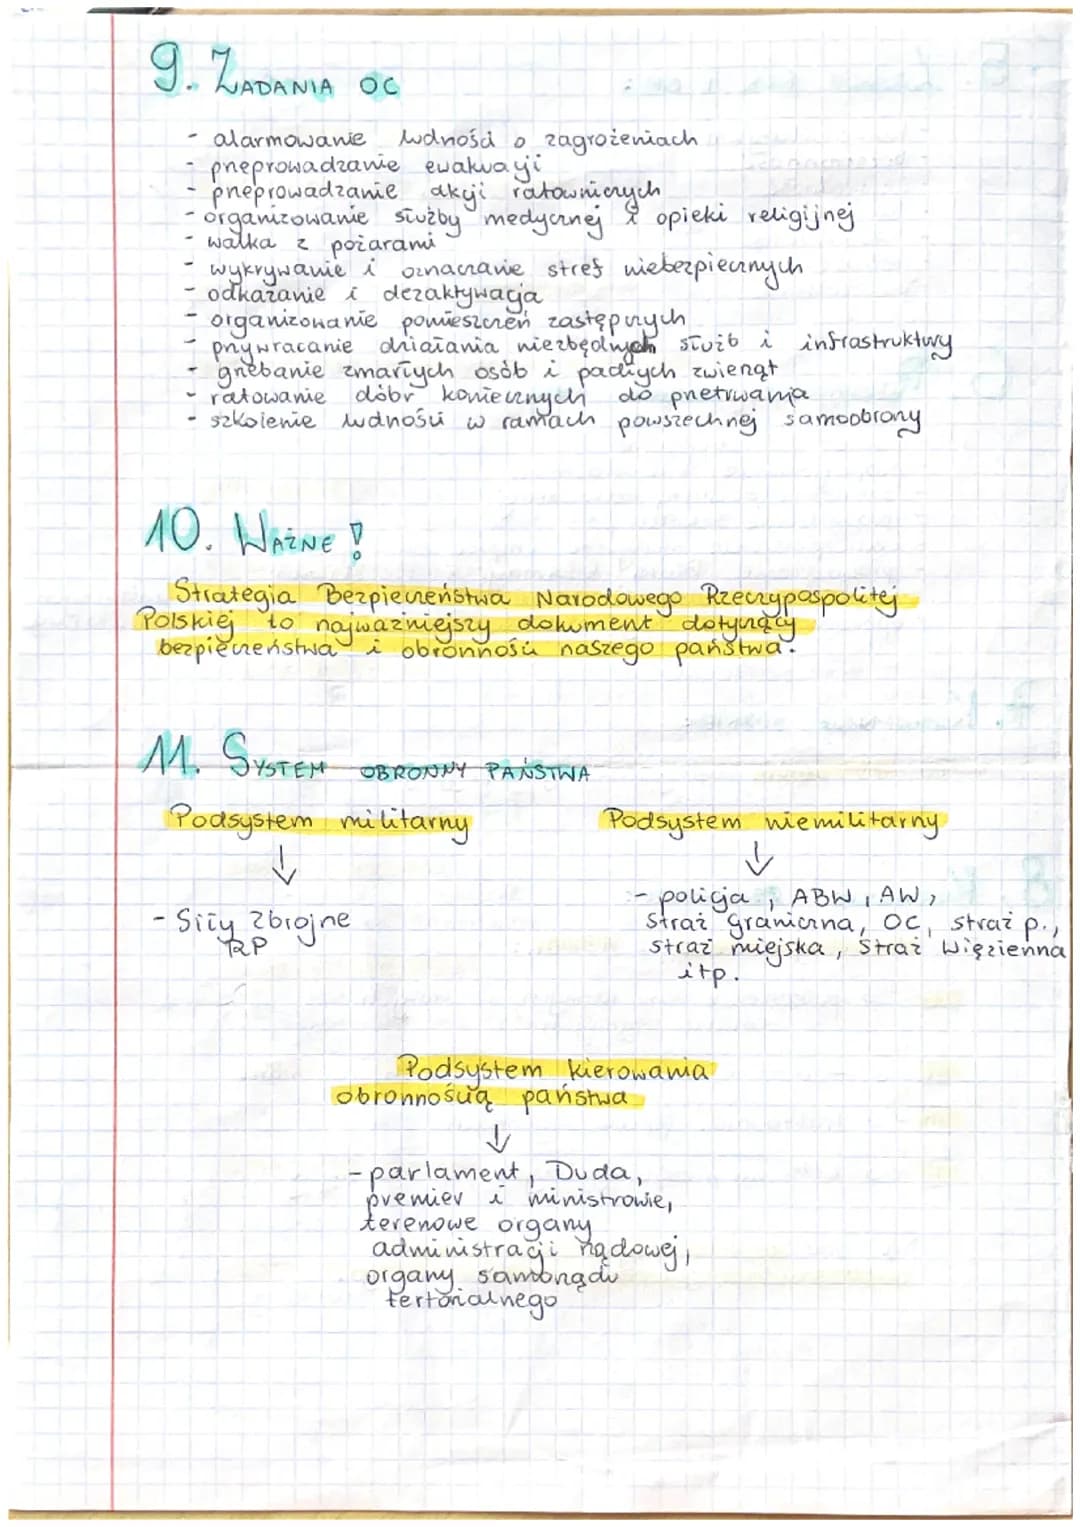 9. ZADANIA OC
- alarmowanie ludności o zagrożeniach
- przeprowadzanie ewakuacji
- przeprowadzanie akcji ratowniczych
- organizowanie służby medycznej i opieki religijnej
- walka z pożarami
- wykrywanie i oznaczanie stref niebezpiecznych
- odkażanie i dezaktywacja
- organizowanie pomieszczeń zastępczych
- przywracanie działania niezbędnych służb i infrastruktury
- grzebanie zmarłych osób i padłych zwierząt
- ratowanie dóbr koniecznych do przetrwania
- szkolenie ludności w ramach powszechnej samoobrony
10. WAŻNE!
Strategia Bezpieczeństwa Narodowego Rzeczypospolitej
Polskiej to najważniejszy dokument dotyczący
bezpieczeństwa i obronności naszego państwa.
11. SYSTEM OBRONNY PAŃSTWA
Podsystem militarny
↓
- Siły zbrojne
RP
Podsystem niemilitarny
↓
- policja, ABW, AW,
Straż graniczna, OC, straż p.,
straż miejska, Straż Więzienna
itp.
Podsystem kierowania
obronnością państwa
↓
- parlament, Duda,
premier i ministrowie,
terenowe organy
administracji rządowej,
organy samorządu
tertorialnego